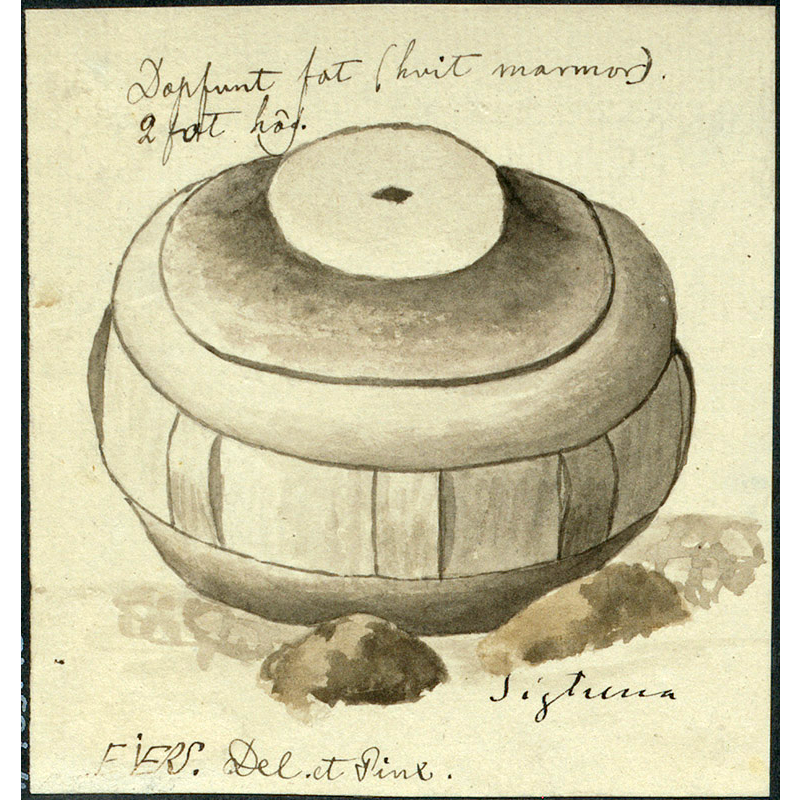 Dopfunt fat (hvit marmor).
2 fot hög.
Sigtuna
Del. et Pinx.